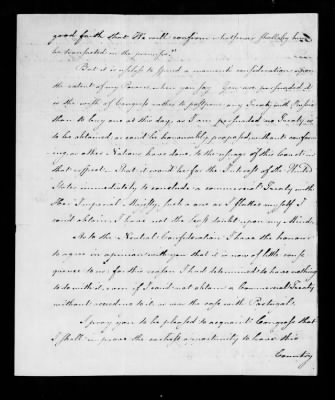 good faith that We will confirm whatsoever shall by him
be transacted in the premises."
But it is useless to spend a moments consideration upon
the extent of my Powers when you say You are persuaded it
is the wish of Congress rather to postpone any Treaty with Russia
than to buy one at this day, as I am persuaded no Treaty is
to be obtained, or could be honourably proposed, without conform-
ing, as other Nations have done, to the usage of this Court in
that respect. That it would be for the Interest of the
States immediately to conclude a commercial Treaty with
Her Imperial Majesty, such a one as I flatter myself I
could obtain, I have not the least doubt upon my Mind.
As to the Neutral Confederation I have the honour
to agree in opinion with you that it is now of little conse
quence to us: for this reason I had determined to have nothing
to do with it, even if I could not obtain a Commercial Treaty
without acceding to it as was the case with Portugal.
I pray you to be pleased to acquaint Congress that
I shall improve the earliest opportunity to leave this
Country